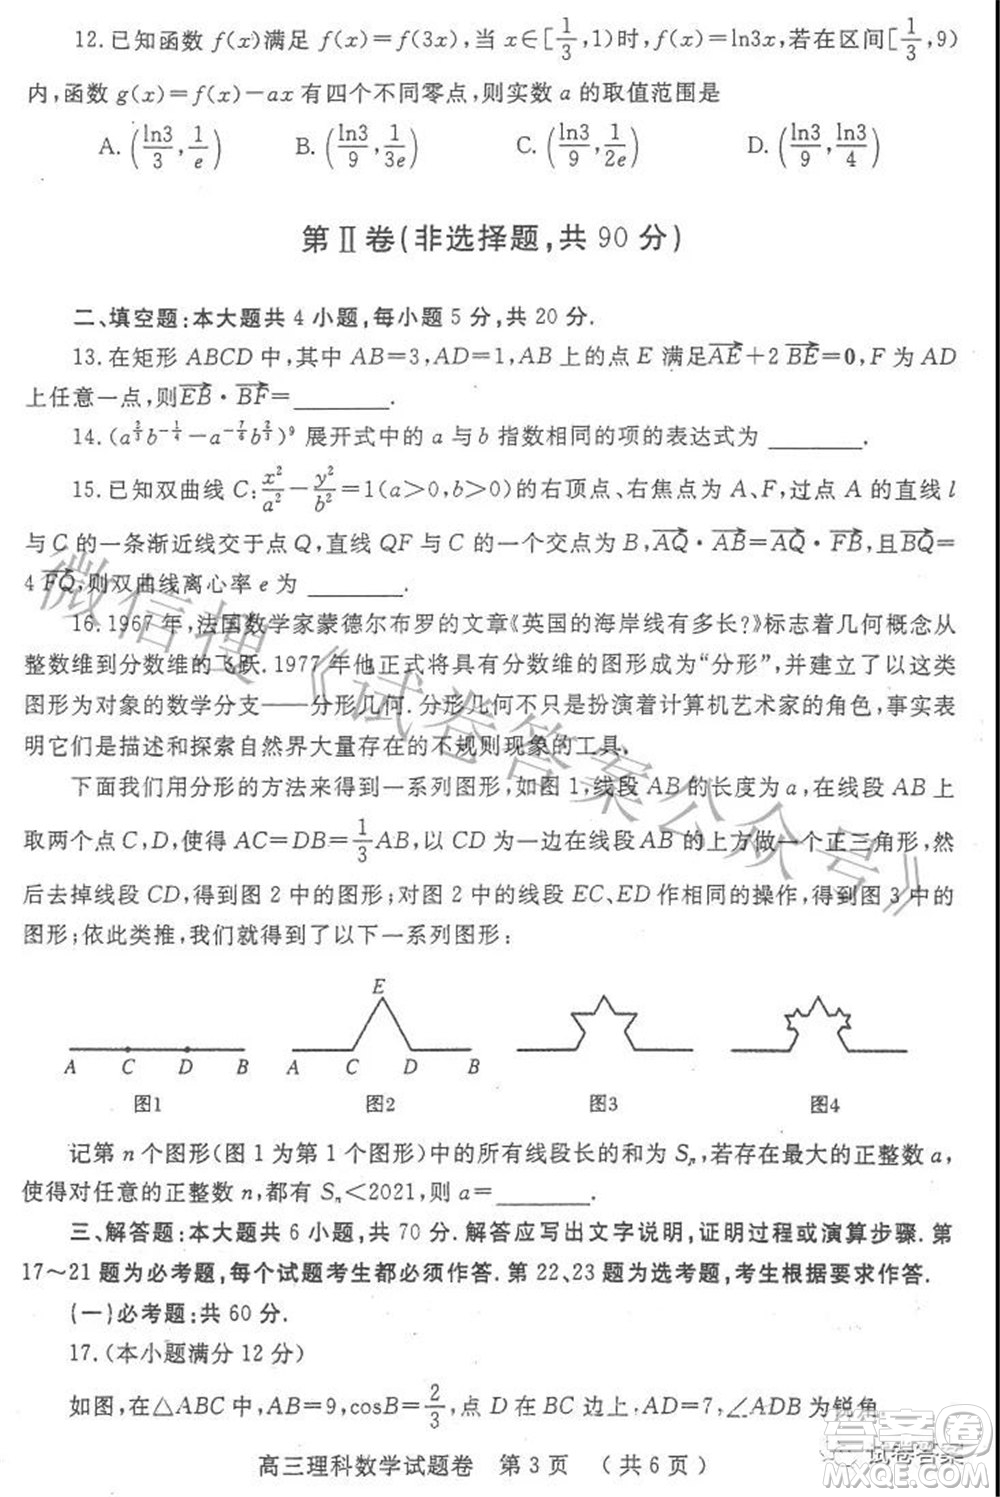 12.已知函数 f(x)满足 f(x)=f(3x),当 x∈[1/3,1)时,f(x)=ln3x,若在区间[1/3,9)
内,函数 g(x)=f(x)-ax 有四个不同零点,则实数 a 的取值范围是
A.(ln3/3,1/e) B.(ln3/9,1/3e) C.(ln3/9,1/2e) D.(ln3/9,ln3/4)
第Ⅱ卷(非选择题,共 90 分)
二、填空题:本大题共 4 小题,每小题 5 分,共 20 分.
13.在矩形 ABCD 中,其中 AB=3,AD=1,AB 上的点 E 满足\overrightarrow{AE}+2\overrightarrow{BE}=0,F 为 AD
上任意一点,则\overrightarrow{EB}·\overrightarrow{BF}=______.
14.(a^{2/3}b^{-1/4}-a^{-7/6}b^{2/3})^9 展开式中的 a 与 b 指数相同的项的表达式为______.
15.已知双曲线 C:x²/a²-y²/b²=1(a>0,b>0)的右顶点、右焦点为 A、F,过点 A 的直线 l
与 C 的一条渐近线交于点 Q,直线 QF 与 C 的一个交点为 B,\overrightarrow{AQ}·\overrightarrow{AB}=\overrightarrow{AQ}·\overrightarrow{FB},且\overrightarrow{BQ}=
4\overrightarrow{FQ},则双曲线离心率 e 为______.
16.1967 年,法国数学家蒙德尔布罗的文章《英国的海岸线有多长?》标志着几何概念从
整数维到分数维的飞跃.1977 年他正式将具有分数维的图形成为“分形”,并建立了以这类
图形为对象的数学分支——分形几何.分形几何不只是扮演着计算机艺术家的角色,事实表
明它们是描述和探索自然界大量存在的不规则现象的工具.
下面我们用分形的方法来得到一系列图形,如图 1,线段 AB 的长度为 a,在线段 AB 上
取两个点 C,D,使得 AC=DB=1/3AB,以 CD 为一边在线段 AB 的上方做一个正三角形,然
后去掉线段 CD,得到图 2 中的图形;对图 2 中的线段 EC,ED 作相同的操作,得到图 3 中的
图形;依此类推,我们就得到了以下一系列图形:
E
A C D B A C D B
图1 图2 图3 图4
记第 n 个图形(图 1 为第 1 个图形)中的所有线段长的和为 Sₙ,若存在最大的正整数 a,
使得对任意的正整数 n,都有 Sₙ<2021,则 a=______.
三、解答题:本大题共 6 小题,共 70 分.解答应写出文字说明,证明过程或演算步骤.第
17~21 题为必考题,每个试题考生都必须作答.第 22、23 题为选考题,考生根据要求作答.
(一)必考题:共 60 分.
17.(本小题满分 12 分)
如图,在△ABC 中,AB=9,cosB=2/3,点 D 在 BC 边上,AD=7,∠ADB 为锐角.
高三理科数学试题卷 第 3 页 (共 6 页)
微信搜《试卷答案公众号》
答案圈
试卷答案
MXQE.COM